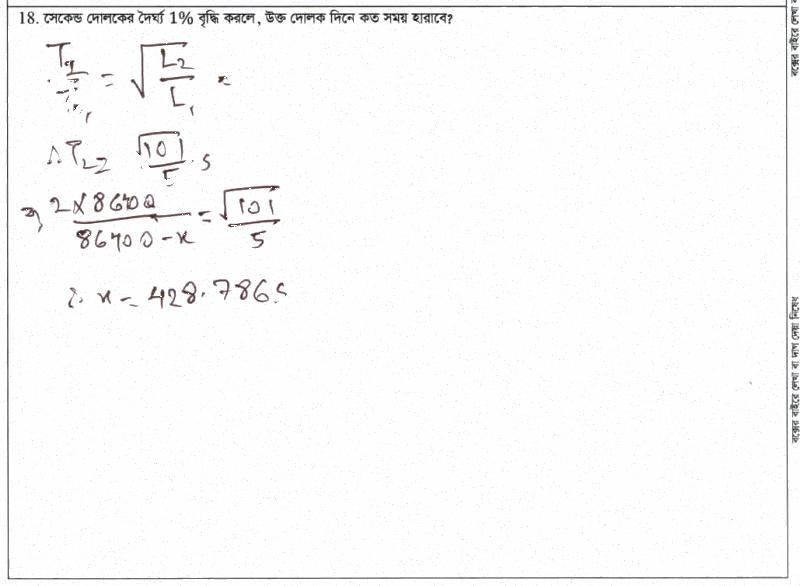 18. সেকেন্ড দোলকের দৈর্ঘ্য 1% বৃদ্ধি করলে, উক্ত দোলক দিনে কত সময় হারাবে?
= √(L₂/L₁)
∴ T₂ = √101/5 s
⇒ 2×86400/86400-x = √101/5
∴ x = 428.786s
বক্সের বাইরে লেখা বা দাগ দেয়া নিষেধ